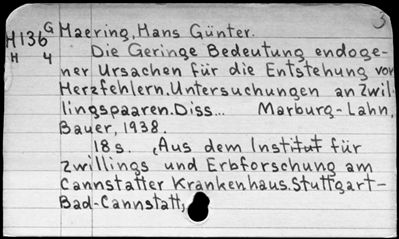 3
H136 G Maering, Hans Günter.
H 4 Die Geringe Bedeutung endoge-
ner Ursachen für die Entstehung von
Herzfehlern. Untersuchungen an Zwil-
lingspaaren. Diss... Marburg-Lahn,
Bauer, 1938.
18 s. (Aus dem Institut für
Zwillings und Erbforschung am
Cannstatter Krankenhaus. Stuttgart-
Bad-Cannstatt,